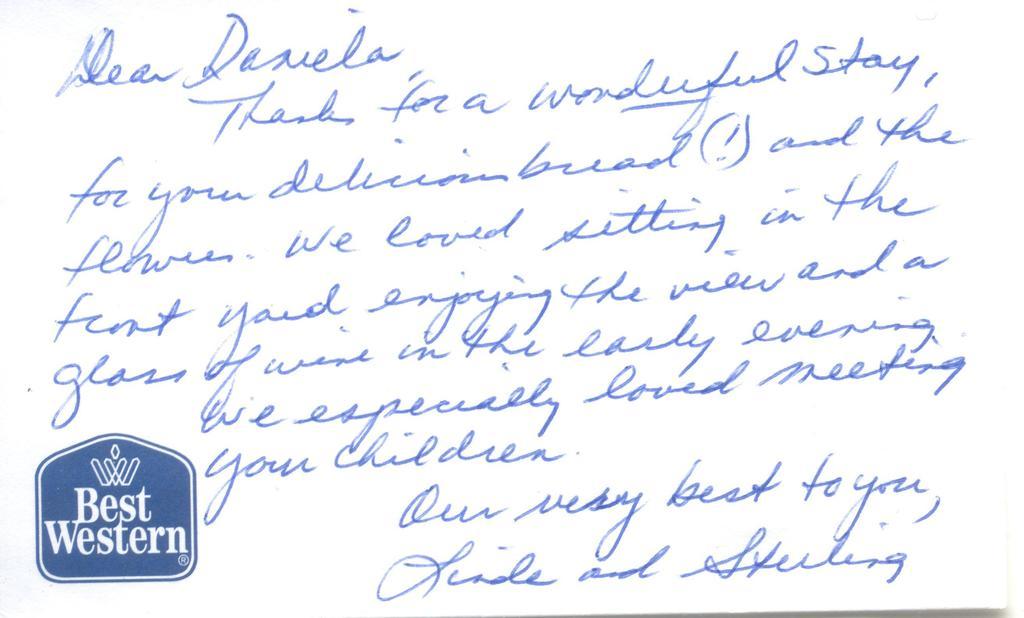 Dear Daniela,
Thanks for a wonderful stay,
for your delicious bread (!) and the
flowers. We loved sitting in the
front yard enjoying the view and a
glass of wine in the early evening.
We especially loved meeting
your children.
Our very best to you,
Linda and Sterling
Best
Western®